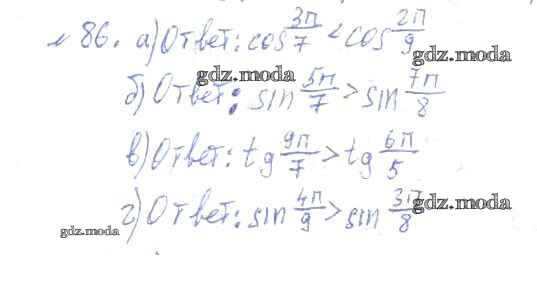 №86. а) Ответ: cos 3π/7 < cos 2π/9
gdz.moda gdz.moda
б) Ответ: sin 5π/7 > sin 7π/8
в) Ответ: tg 9π/7 > tg 6π/5
г) Ответ: sin 4π/9 > sin 3π/8
gdz.moda gdz.moda